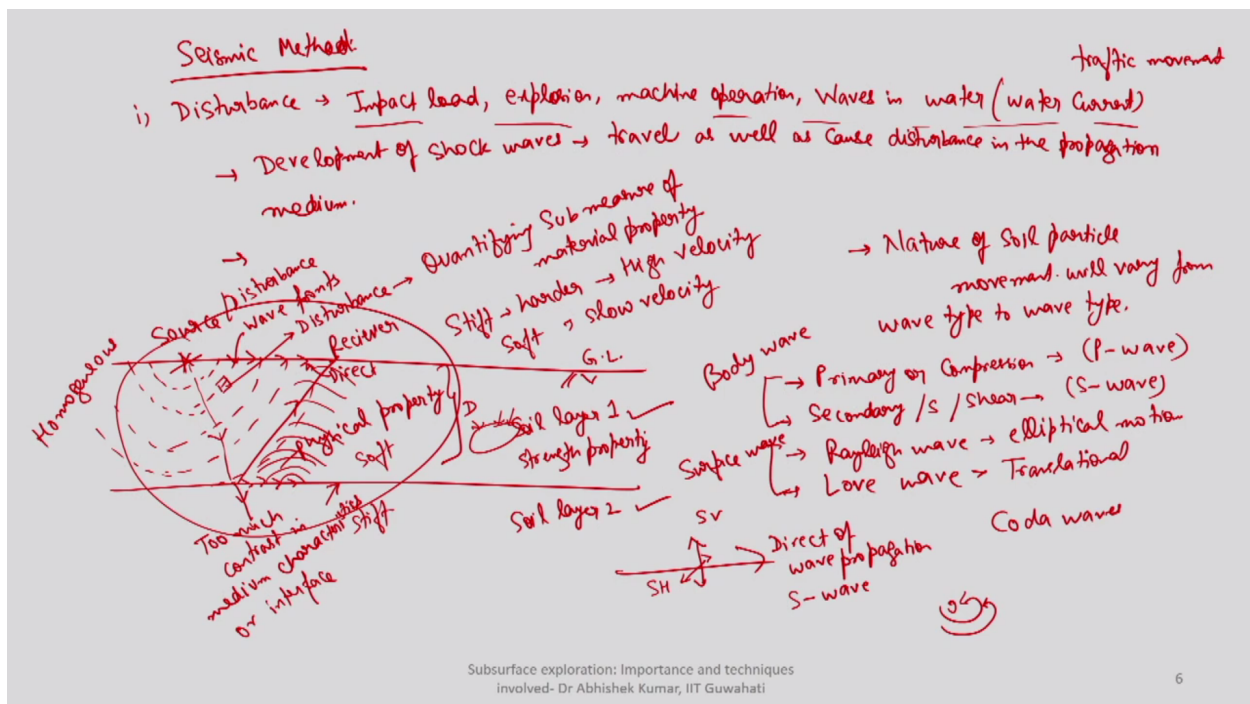 Seismic Method
traffic movement
i, Disturbance → Impact load, explosion, machine operation, Waves in water (water Current)
→ Development of shock waves → travel as well as cause disturbance in the propagation
medium.
→
Source/Disturbance
wave fonts
Disturbance → Quantifying Sub measure of
material property
Stiff → harder → High velocity
Soft → slow velocity
Reciever
Direct
Homogeneous
Physical property
Soft
D
G.L.
Soil layer 1
strength property
Soil layer 2
Stiff
Too much
contrast in
medium characteristics
or interface
→ Nature of Soil particle
movement will vary from
wave type to wave type.
Body wave
→ Primary or Compression → (P-wave)
→ Secondary /S /Shear → (S-wave)
Surface wave
→ Rayleigh wave → elliptical motion
→ Love wave > Translational
Coda waves
SV
SH
Direct of
wave propagation
S-wave
Subsurface exploration: Importance and techniques
involved- Dr Abhishek Kumar, IIT Guwahati
6